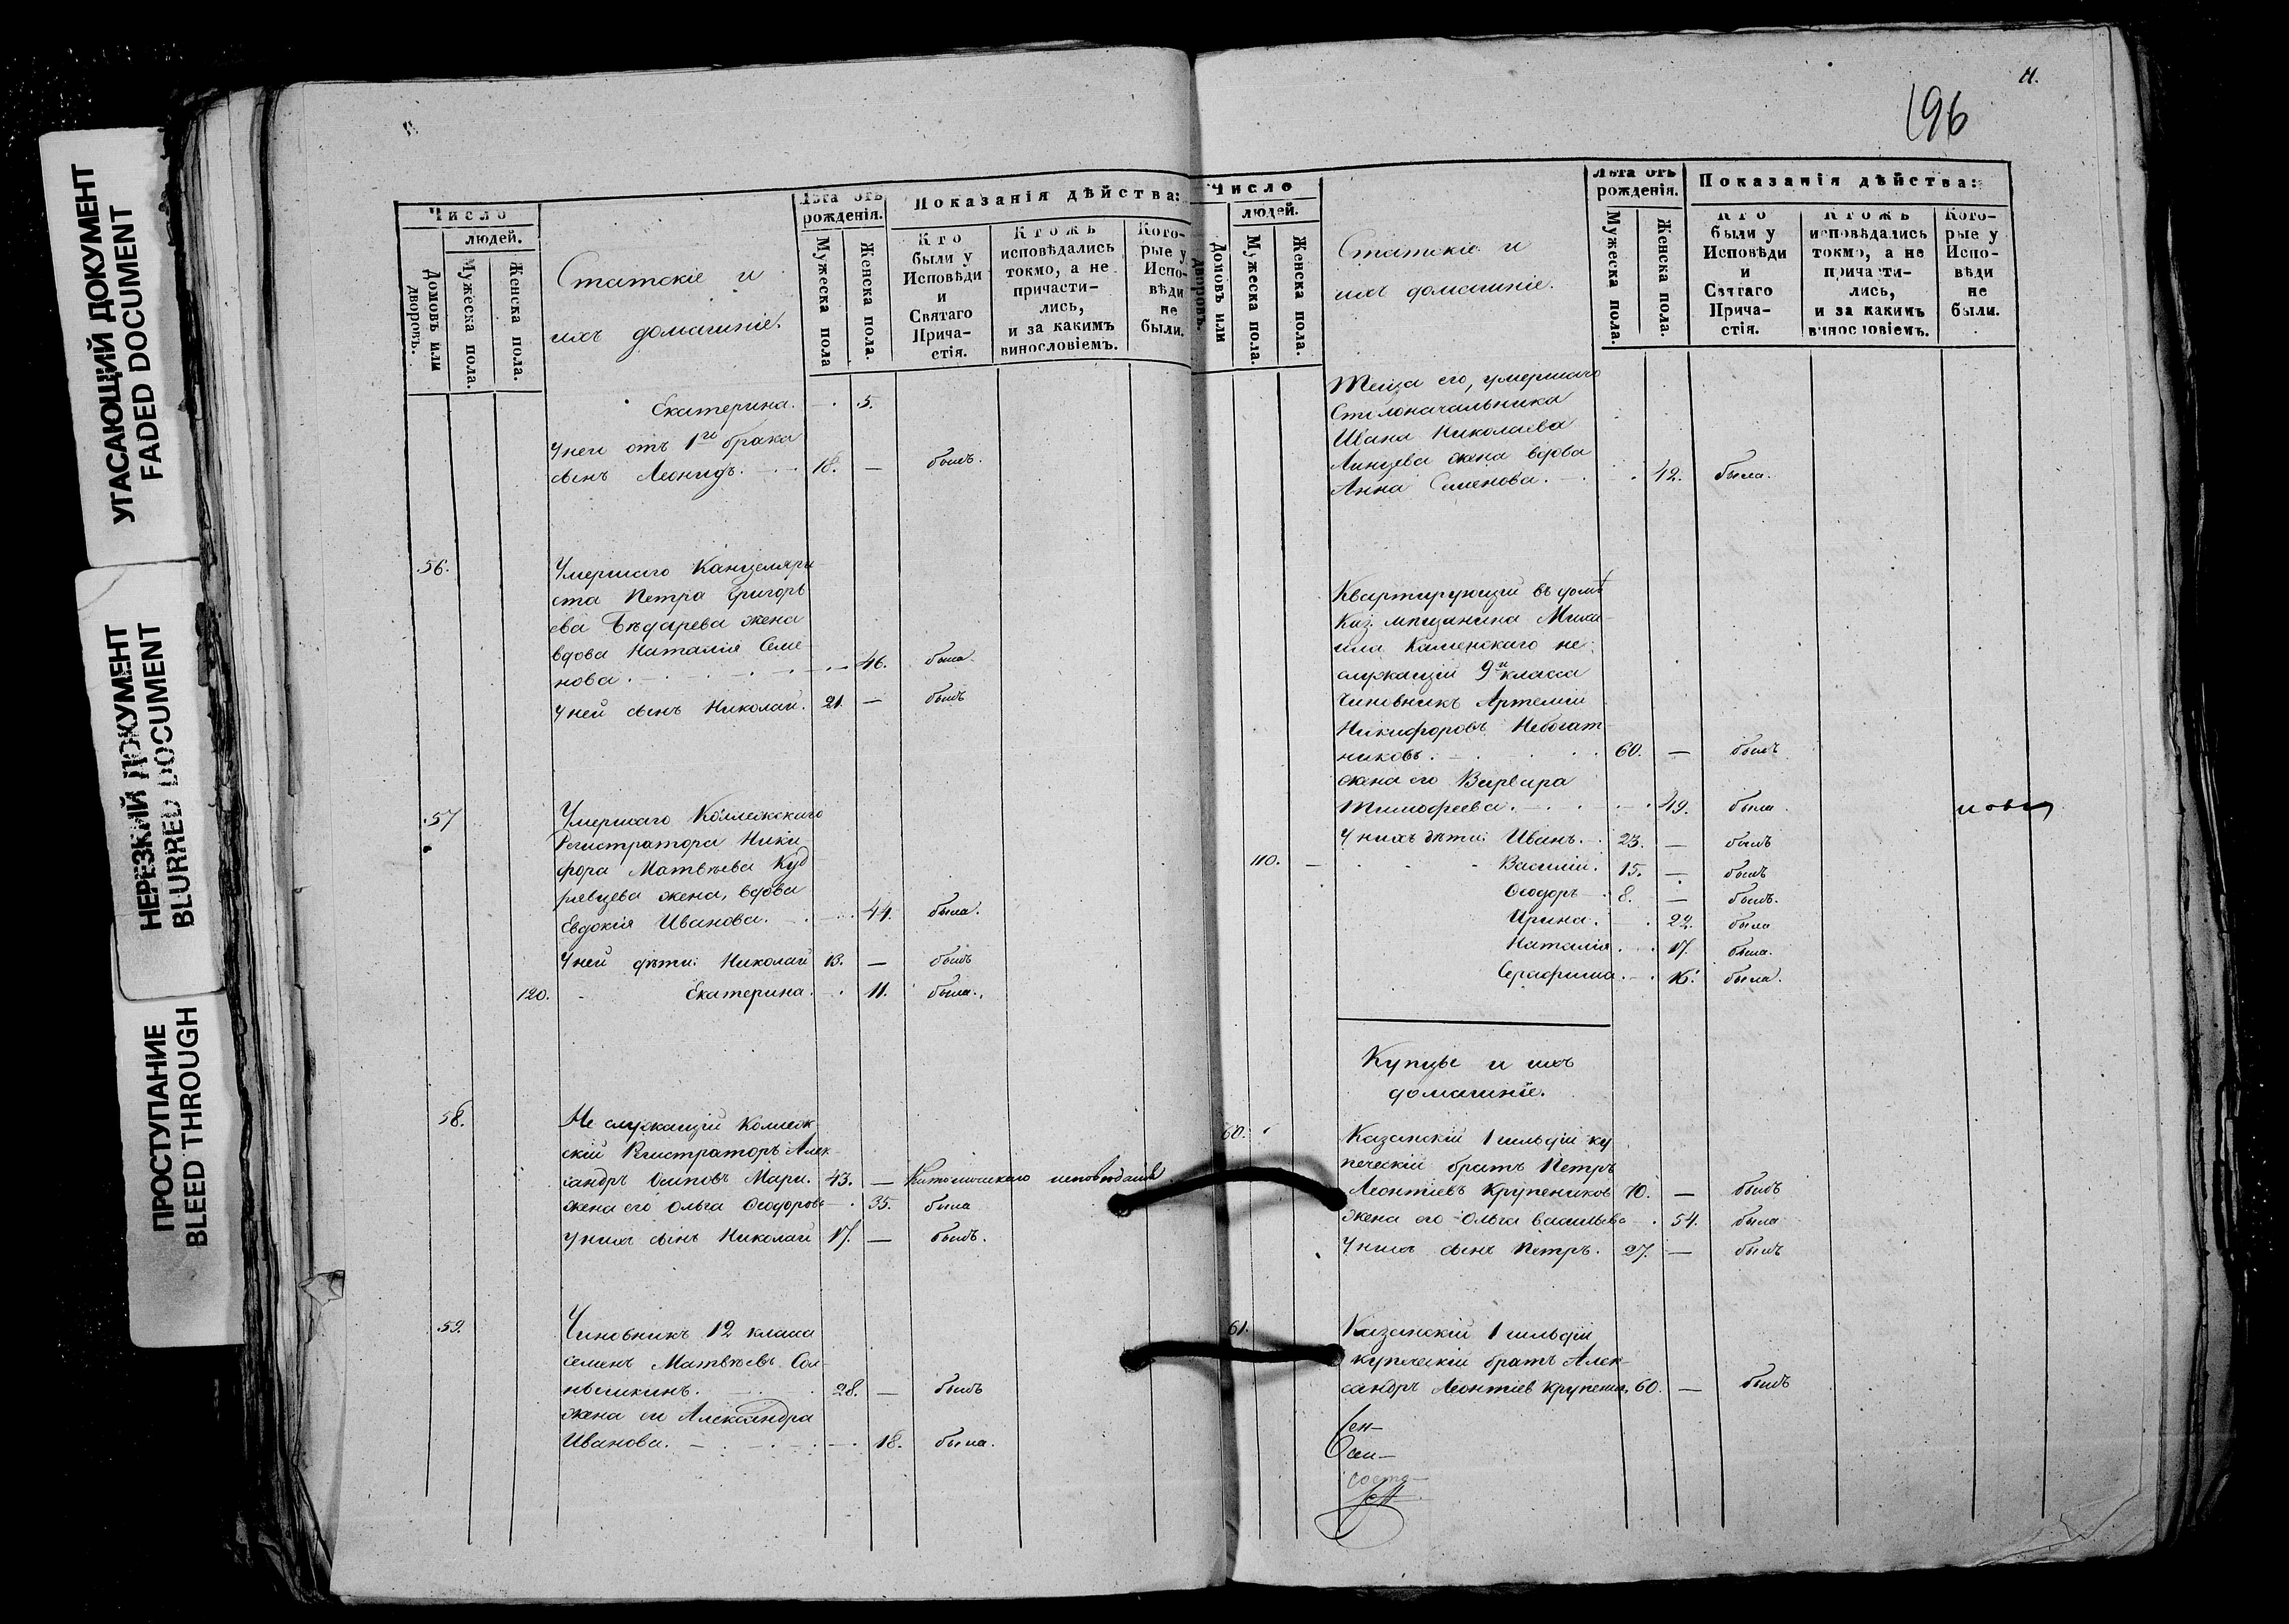 УГАСАЮЩИЙ ДОКУМЕНТ
FADED DOCUMENT
НЕРЕЗКИЙ ДОКУМЕНТ
BLURRED DOCUMENT
ПРОСТУПАНИЕ
BLEED THROUGH
Число
людей.
Домовъ или дворовъ.
Мужеска пола.
Женска пола.
Статскіе и
ихъ домашніе.
Лѣта отъ рожденія.
Мужеска пола
Женска пола.
Показанія дѣйства:
Кто были у Исповѣди и Святаго Прича-стія.
Ктожъ исповѣдались токмо, а не причасти-лись, и за какимъ винословіемъ.
Кото-рые у Испо-вѣди не были.
Екатерина. 5.
У неи отъ 1го брака
сынъ Леонидъ. 18. — былъ.
56. Умершаго Канцеляри
ста Петра Григорь
ева Бѣдарева жена
вдова Наталія Семе
нова. 46. была.
У ней сынъ Николай. 21. — былъ
57 Умершаго Коллежскаго
Регистратора Ники
фора Матвѣева Куд
рявцева жена, вдова
Евдокія Иванова. 44. была.
У ней дѣти: Николай 13. — былъ
120. Екатерина. 11. была.
58. Не служащій Коллеж
скій Регистраторъ Алек
сандръ Осиповъ Мари. 43. — Католическаго исповѣданія
жена его Ольга Ѳеодорова 35. была
У нихъ сынъ Николай 17. — былъ.
59. Чиновникъ 12 класса
Семенъ Матвѣевъ Сол-
нышкинъ. 28. — былъ
жена его Александра
Иванова. 18. была.
11.
196
Число
людей.
Домовъ или дворовъ.
Мужеска пола.
Женска пола.
Статскіе и
ихъ домашніе.
Лѣта отъ рожденія.
Мужеска пола.
Женска пола.
Показанія дѣйства:
Кто были у Исповѣди и Святаго Прича-стія.
Ктожъ исповѣдались токмо, а не причасти-лись, и за какимъ винословіемъ.
Кото-рые у Испо-вѣди не были.
Теща его, умершаго
Столоначальника
Ивана Николаева
жена вдова
Анна Семенова. 42. была.
Квартирующій въ домѣ
Каз. мѣщанина Миха-
ила Каменскаго не
служащій 9го класса
Чиновникъ Артемій
Никифоровъ Небогат-
никовъ. 60. — былъ
жена его Варвара
Тимофеева. 49. была
У нихъ дѣти: Иванъ. 23. — былъ
110. — Василій. 15. — былъ
Ѳеодоръ 8. — былъ.
Ирина. 22. была
Наталія. 17. была.
Серафима. 16. была.
Купцы и ихъ
домашніе.
60. Казанскій 1 гильдіи ку
печескій братъ Петръ
Леонтіевъ Крупениковъ 70. — былъ
жена его Ольга Васильева 54. была
У нихъ сынъ Петръ. 27. — былъ
61. Казанскій 1 гильдіи
купеческій братъ Алек-
сандръ Леонтіев Крупеник. 60. — былъ